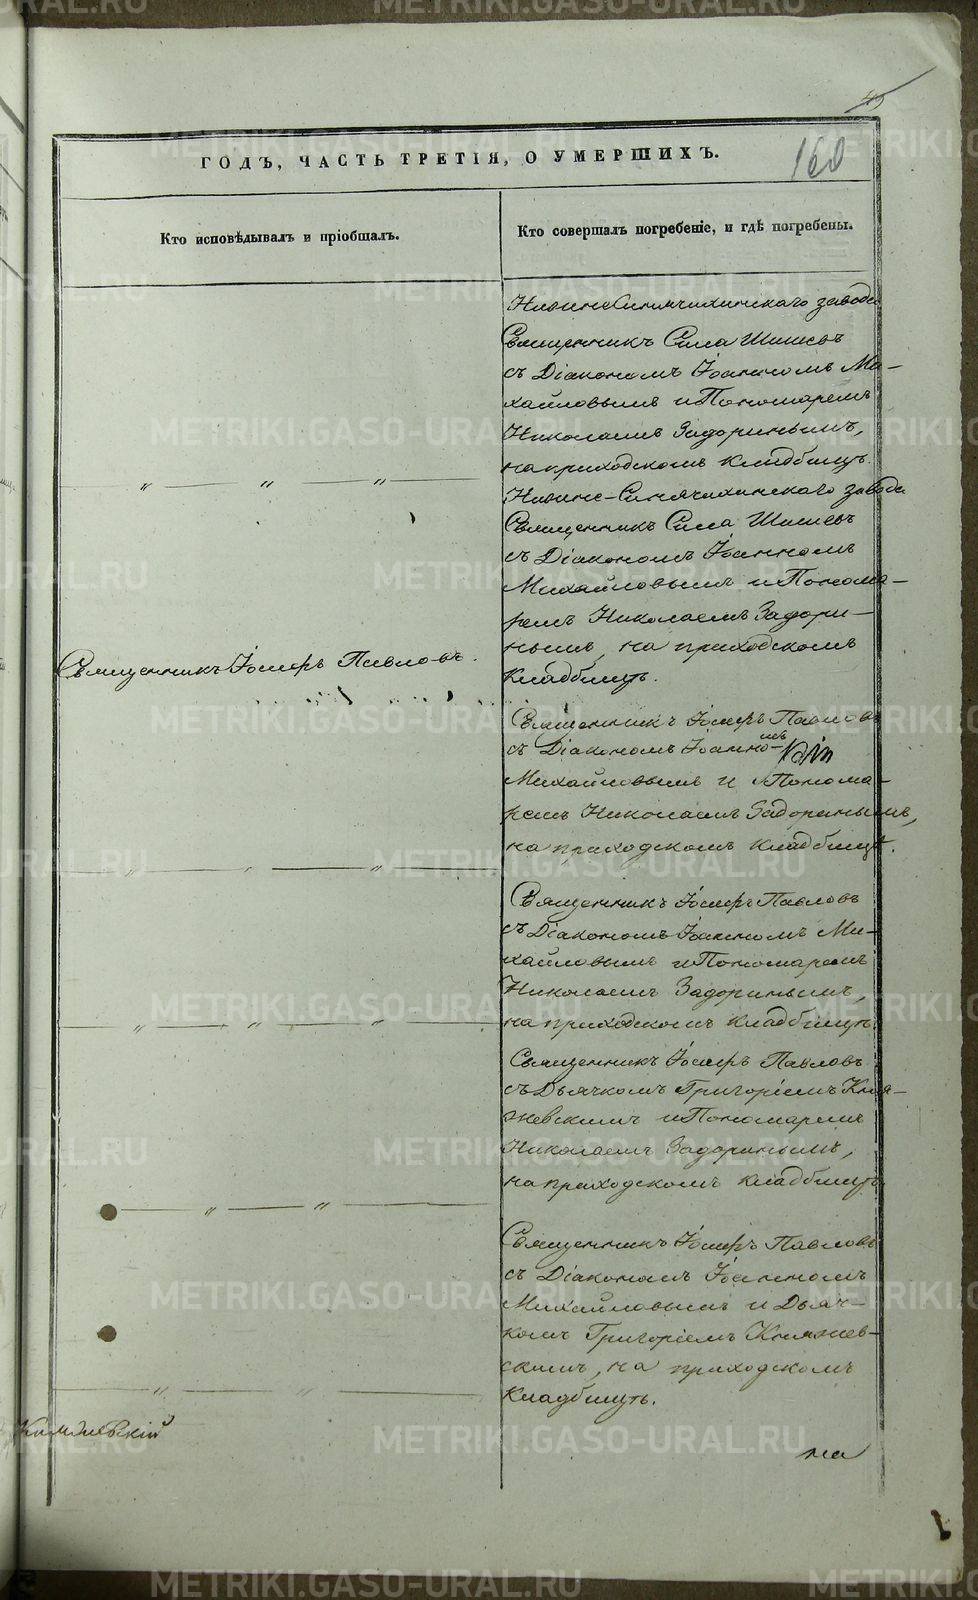 49
160
ГОДЪ, ЧАСТЬ ТРЕТІЯ, О УМЕРШИХЪ.
Кто исповѣдывалъ и пріобщалъ.
Кто совершалъ погребеніе, и гдѣ погребены.
Нижне Синячихинскаго завода
Священникъ Сила Шишевъ
съ Діакономъ Іоанномъ Ми-
хайловымъ и Пономаремъ
Николаемъ Задоринымъ,
на приходскомъ кладбищѣ.
Нижне-Синячихинскаго завода
Священникъ Сила Шишевъ
съ Діакономъ Іоанномъ
Михайловымъ и Понома-
ремъ Николаемъ Задори-
нымъ, на приходскомъ
кладбищѣ.
Священникъ Іосифъ Павловъ.
Священникъ Іосифъ Павловъ
съ Діакономъ Іоанномъ
Михайловымъ и Понома-
ремъ Николаемъ Задоринымъ,
на приходскомъ кладбищѣ.
Священникъ Іосифъ Павловъ
съ Діакономъ Іоанномъ Ми-
хайловымъ и Пономаремъ
Николаемъ Задоринымъ,
на приходскомъ кладбищѣ.
Священникъ Іосифъ Павловъ
съ Дьячкомъ Григоріемъ Кня-
жевскимъ и Пономаремъ
Николаемъ Задоринымъ,
на приходскомъ кладбищѣ
Священникъ Іосифъ Павловъ
съ Діакономъ Іоанномъ
Михайловымъ и Дьяч-
комъ Григоріемъ Княжев-
скимъ, на приходскомъ
кладбищѣ.
на
METRIKI.GASO-URAL.RU